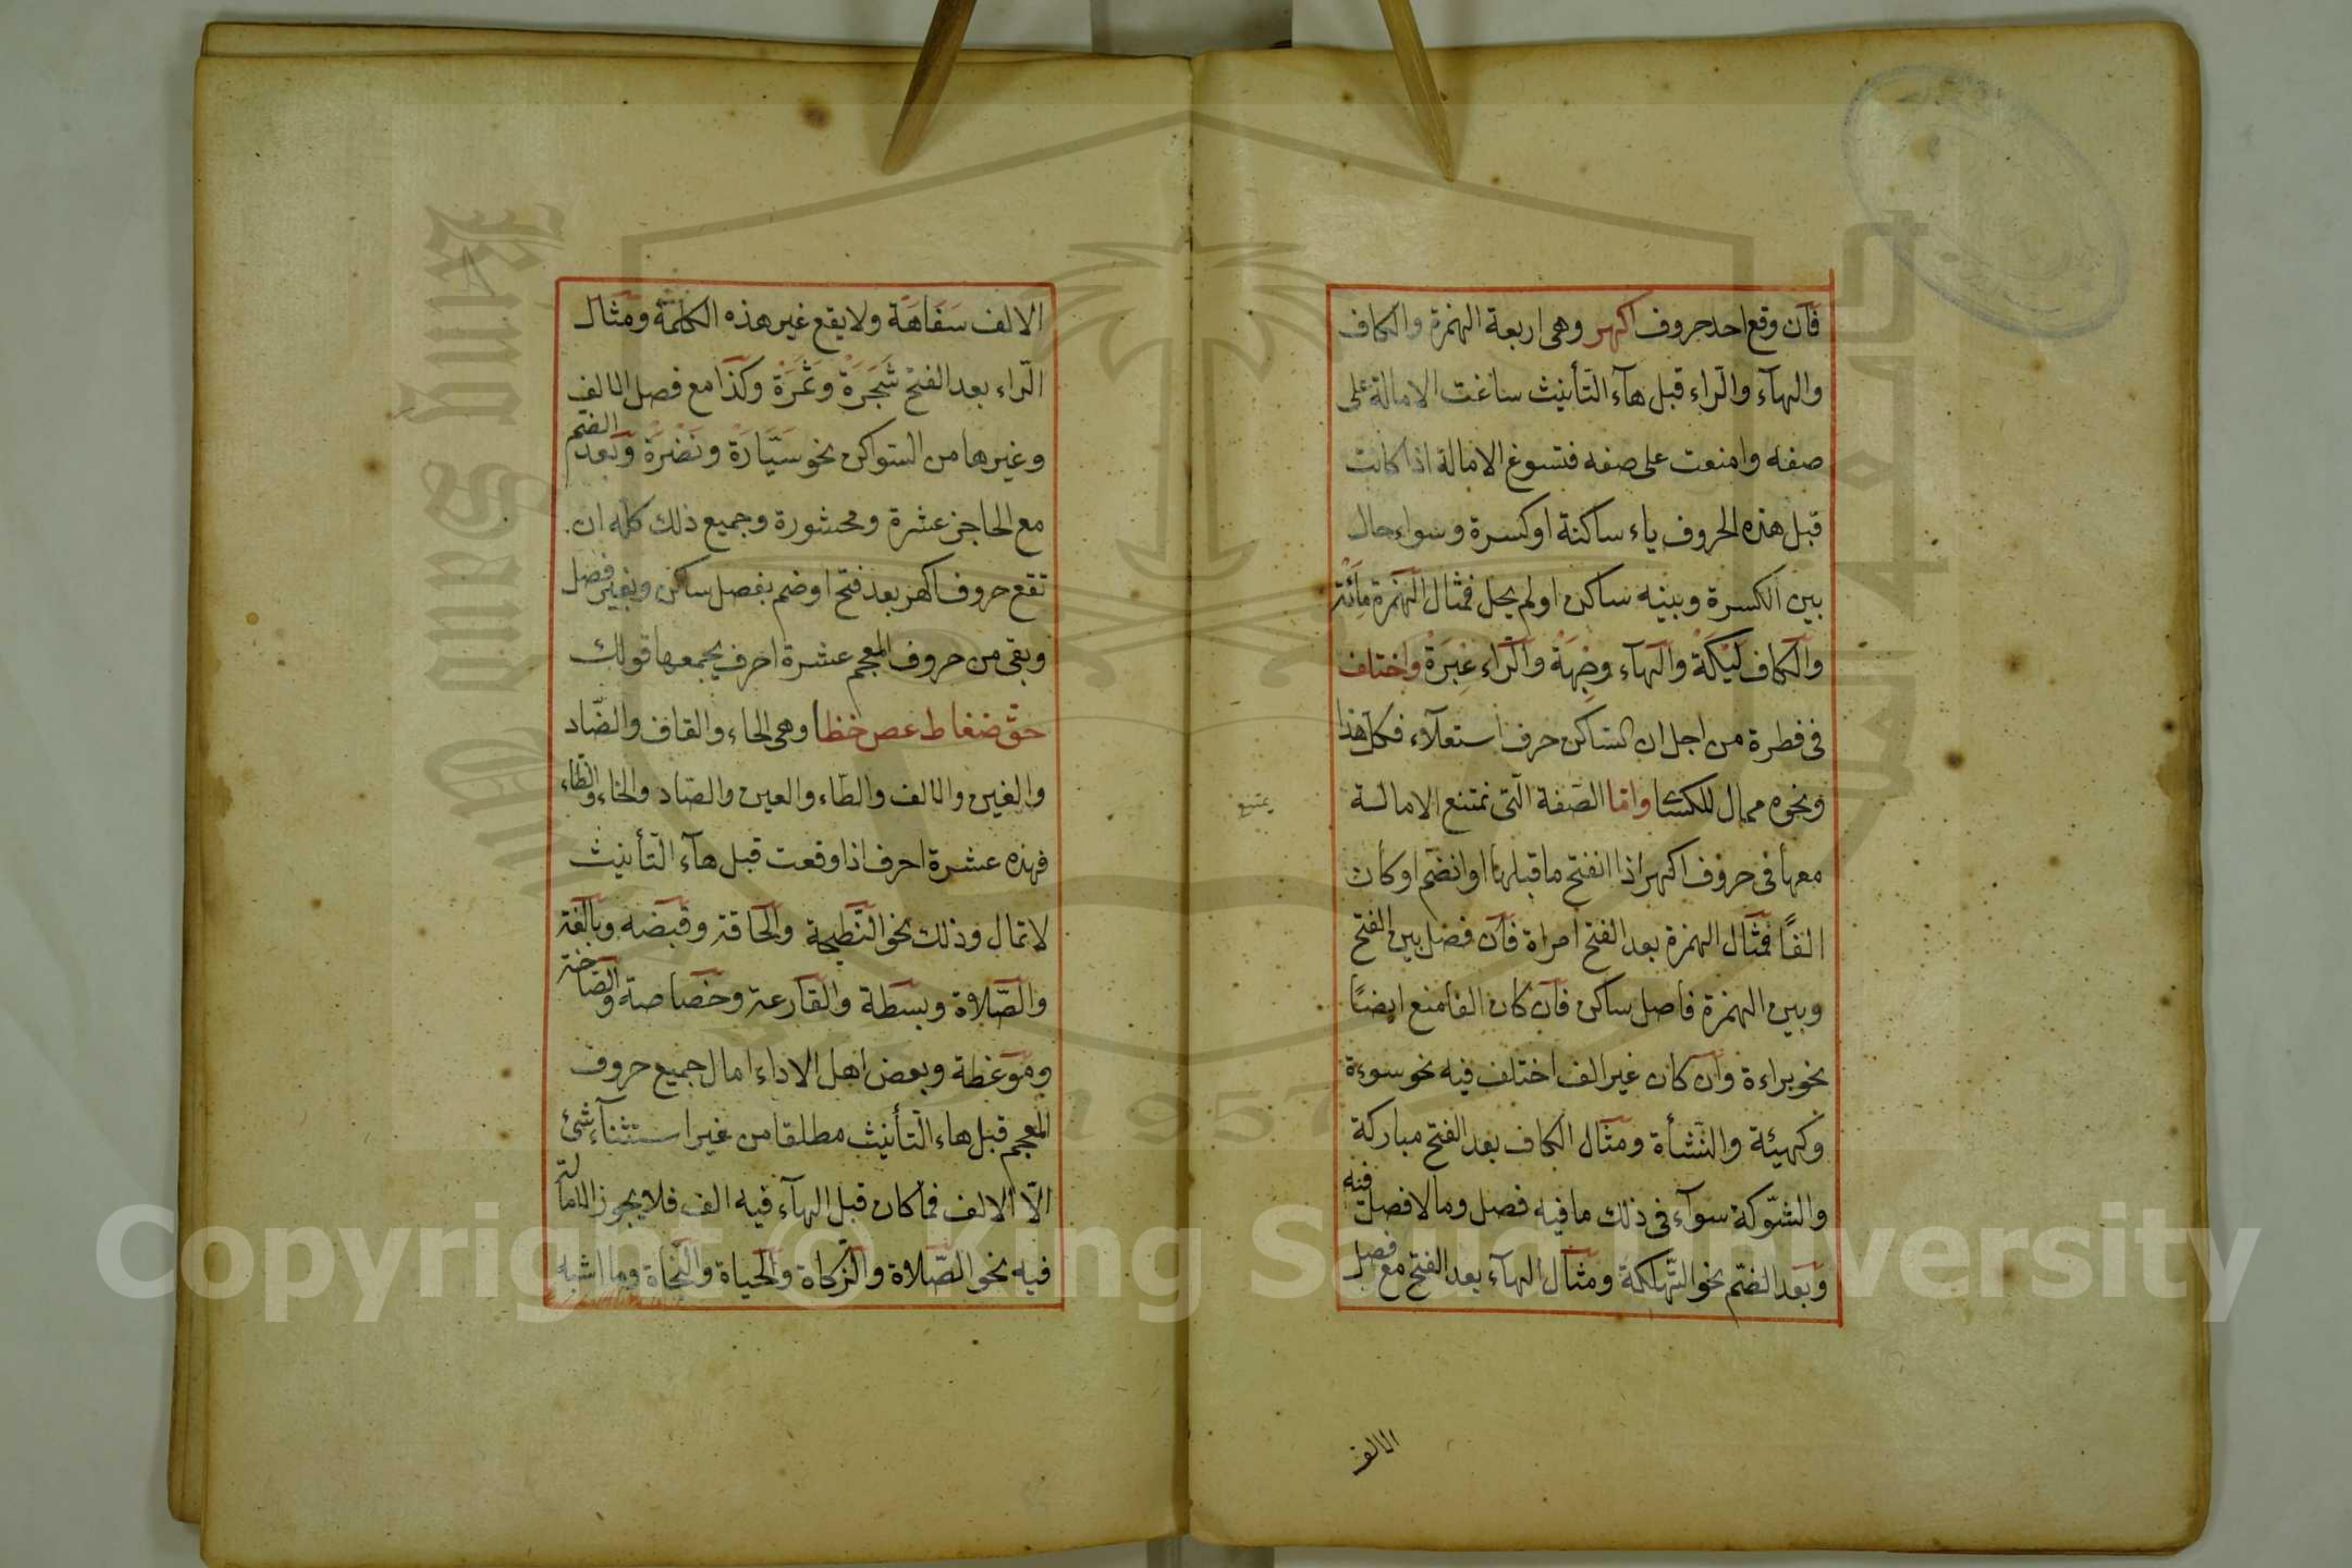 فآن وقع احد حروف اكهر وهى اربعة الهمزة والكاف
والهآء والرّاء قبل هآء التّأنيث ساغت الامالة على
صفه وامنعت على صفه فتسوغ الامالة اذا كانت
قبل هذه الحروف ياء ساكنة اوكسرة وسواء حال
بين الكسرة وبينه ساكن اولم يحل فمثال الهمزة مائة
والكاف ليكة والهآء وجهة والرّاء عبرة واختلف
فى فطرة من اجل ان السّاكن حرف استعلآء فكل هذا
ونحوه ممال للكسّا وامّا الصّفة الّتى تمتنع الامالة
يمتنع
معها فى حروف اكهر اذا انفتح ما قبلها اوانضم اوكان
الفًا فمثال الهمزة بعد الفتح امراة فآن فصل بين الفتح
وبين الهمزة فاصل ساكن فآن كان الفا منع ايضًا
نحو براءة وآن كان غير الف اختلف فيه نحو سوءة
وكهيئة والنّشأة ومثال الكاف بعد الفتح مباركة
والشّوكة سوآء فى ذلك ما فيه فصل وما لا فصل فيه
وبعد الضّم نحو التّهلكة ومثال الهآء بعد الفتح مع فصل
الالف
الالف سفاهة ولا يقع غير هذه الكلمة ومثال
الرّاء بعد الفتح شجرة وثمرة وكذا مع فصل الالف
وغيرها من السّواكن نحو سيّارة ونضرة وبعد الضم
مع الحاجز عشرة ومحشورة وجميع ذلك كله ان
تقع حروف اكهر بعد فتح اوضم بفصل ساكن وبغير فصل
وبقى من حروف المعجم عشرة احرف يجمعها قولك
حقّ ضغاط عص خظا وهى الحاء والقاف والضّاد
والغين والالف والطّاء والعين والصّاد والخاء والظّاء
فهذه عشرة احرف اذا وقعت قبل هآء التّأنيث
لا تمال وذلك نحو النّطيحة والحاقة وقبضه وبالغة
والصّلاة وبسطة والقارعة وخصاصة والصّاخة
وموعظة وبعض اهل الاداء امال جميع حروف
المعجم قبل هاء التّأنيث مطلقا من غير استثنآء شئ
الّا الالف فما كان قبل الهآء فيه الف فلا يجوز الامالة
فيه نحو الصّلاة والزّكاة والحياة والنّجاة وما اشبه
King Saud University
1957
Copyright © King Saud University